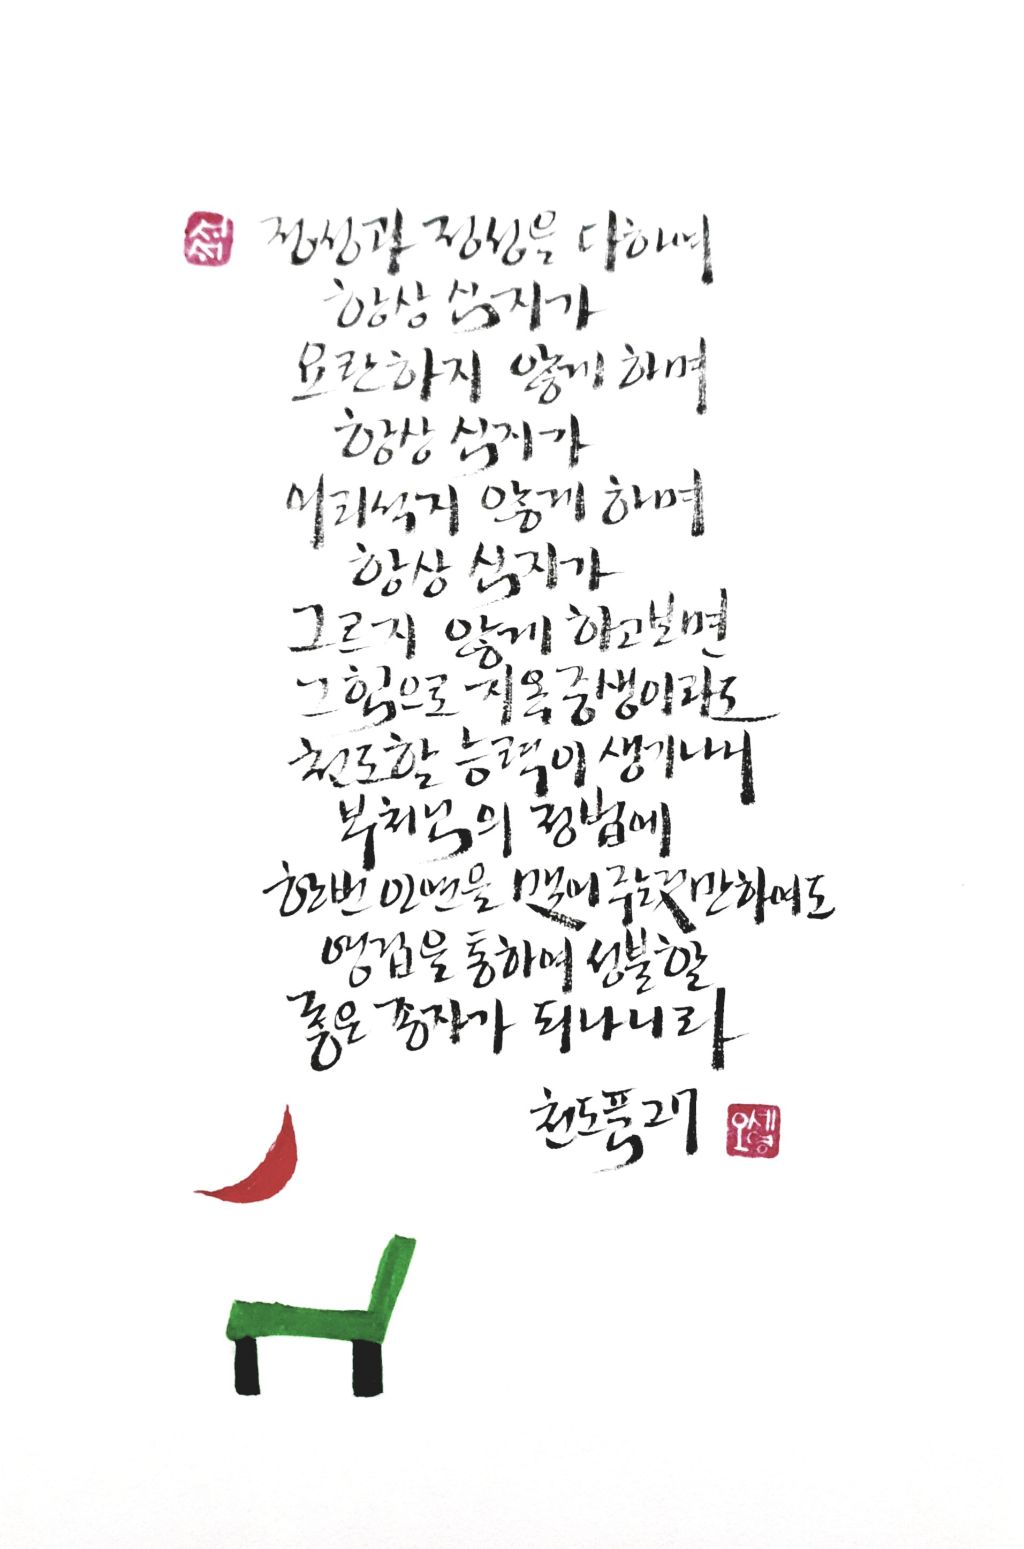 정성과 정성을 다하며
항상 심지가
요란하지 않게 하며
항상 심지가
어리석지 않게 하며
항상 심지가
그르지 않게 하고보면
그힘으로 지옥중생이라도
천도할 능력이 생기나니
부처님의 정법에
한번 인연을 맺어주는것만하여도
영겁을 통하여 성불할
좋은 종자가 되나니라
천도품27
오세영